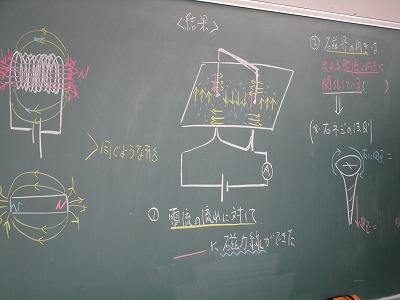 <結果>
N
同じような形
N
A
① 電流の流れに対して
に磁力線ができた
② 磁界の向きは
流れる電流の向きに
関係している( )
(※右ネジの法則)